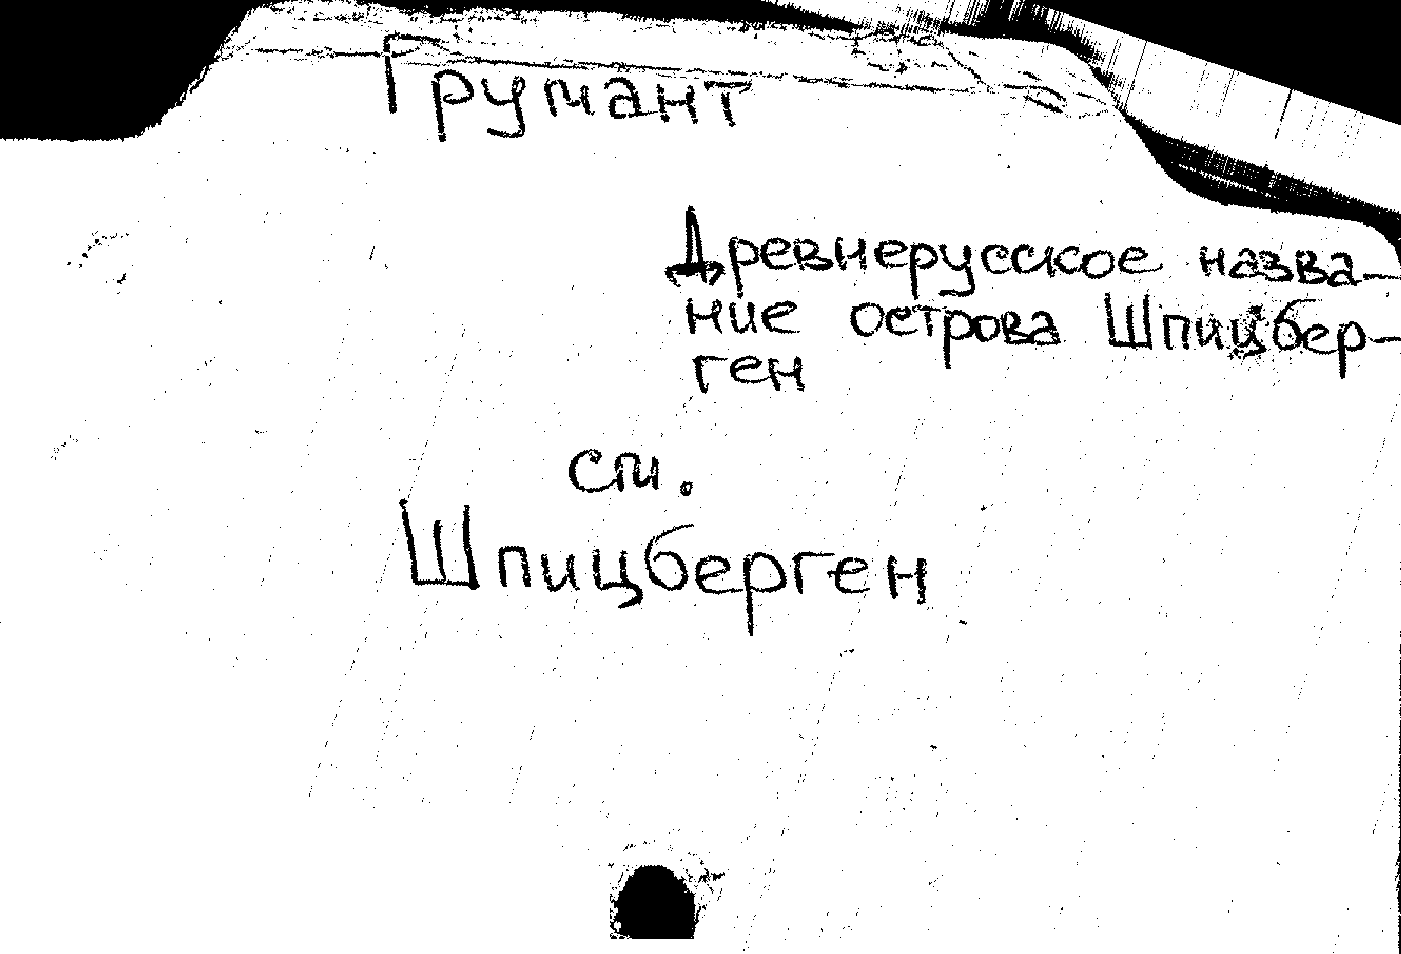 Грумант
Древнерусское назва-
ние острова Шпицбер-
ген
см.
Шпицберген